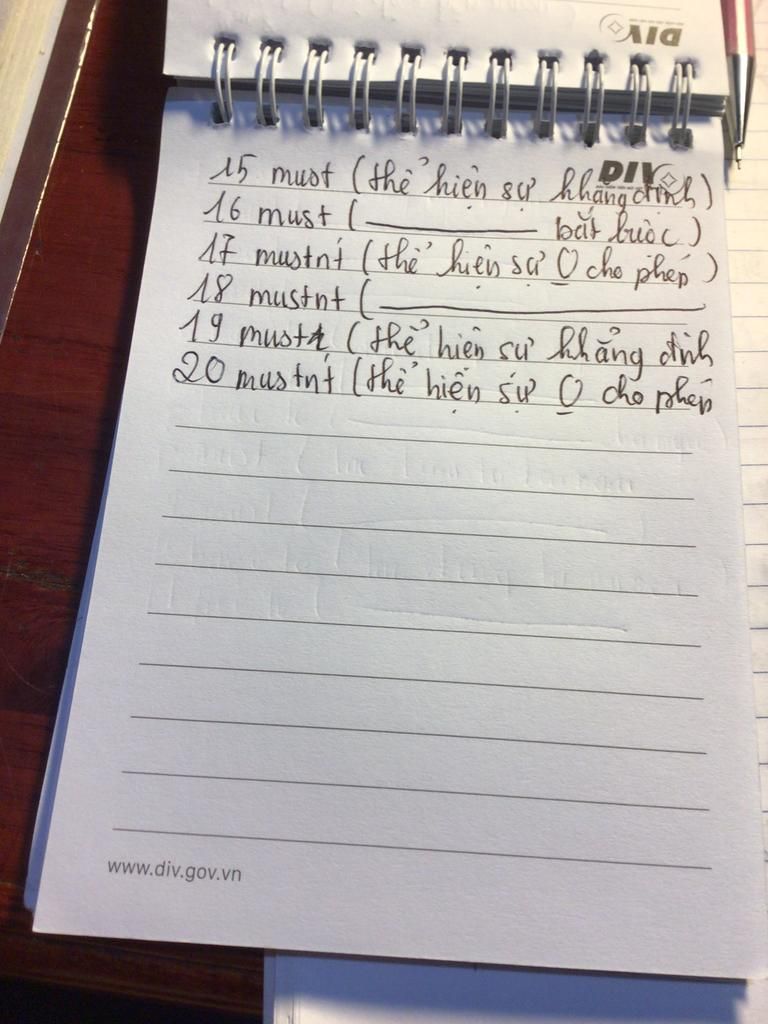 DIV
DIV
15 must (thể hiện sự khẳng định)
16 must (________ bắt buộc)
17 mustnt (thể hiện sự O cho phép)
18 mustnt (________________
19 must (thể hiện sự khẳng định
20 mustnt (thể hiện sự O cho phép
www.div.gov.vn